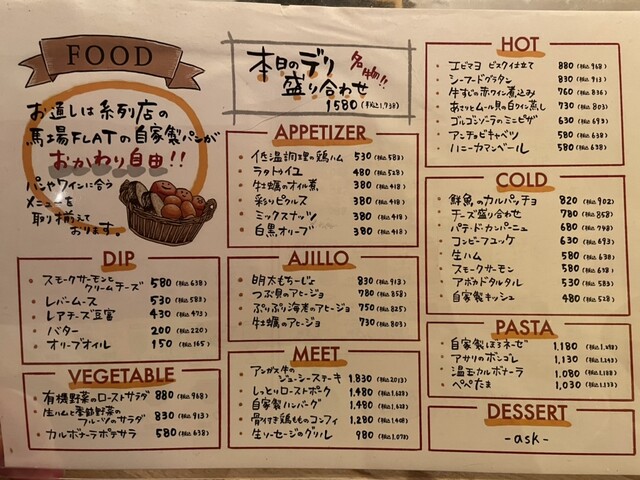 FOOD
お通しは系列店の
馬場FLATの自家製パンが
おかわり自由!!
パンやワインに合う
メニューを
取り揃えて
おります。
本日のデリ
盛り合わせ
名物!!
1580(税込1,738)
DIP
・スモークサーモンと
クリームチーズ 580(税込638)
・レバームース 530(税込583)
・レアチーズ豆腐 430(税込473)
・バター 200(税込220)
・オリーブオイル 150(税込165)
VEGETABLE
・有機野菜のローストサラダ 880(税込968)
・生ハムと季節野菜の
フルーツのサラダ 830(税込913)
・カルボナーラポテサラ 580(税込638)
APPETIZER
・低温調理の鶏ハム 530(税込583)
・ラタトゥイユ 480(税込528)
・牡蠣のオイル煮 380(税込418)
・彩りピクルス 380(税込418)
・ミックスナッツ 380(税込418)
・白黒オリーブ 380(税込418)
AJILLO
・明太もちーじょ 830(税込913)
・つぶ貝のアヒージョ 780(税込858)
・ぷりぷり海老のアヒージョ 750(税込825)
・牡蠣のアヒージョ 730(税込803)
MEET
・アンガス牛の
ジューシーステーキ 1,830(税込2,013)
・しっとりローストポーク 1,480(税込1,628)
・自家製ハンバーグ 1,480(税込1,628)
・骨付き鶏もものコンフィ 1,280(税込1,408)
・生ソーセージのグリル 980(税込1,078)
HOT
・エビマヨ ビスク仕立て 880(税込968)
・シーフードグラタン 830(税込913)
・牛すじの赤ワイン煮込み 760(税込836)
・あさりとムール貝の白ワイン蒸し 730(税込803)
・ゴルゴンゾーラのミニピザ 630(税込693)
・アンチョビキャベツ 580(税込638)
・ハニーカマンベール 580(税込638)
COLD
・鮮魚のカルパッチョ 820(税込902)
・チーズ盛り合わせ 780(税込858)
・パテ・ド・カンパーニュ 680(税込748)
・コンビーフユッケ 630(税込693)
・生ハム 580(税込638)
・スモークサーモン 580(税込638)
・アボカドタルタル 530(税込583)
・自家製キッシュ 480(税込528)
PASTA
・自家製ぼろネーゼ 1,180(税込1,298)
・アサリのボンゴレ 1,130(税込1,243)
・温玉カルボナーラ 1,080(税込1,188)
・ペペたま 1,030(税込1,133)
DESSERT
-ask-